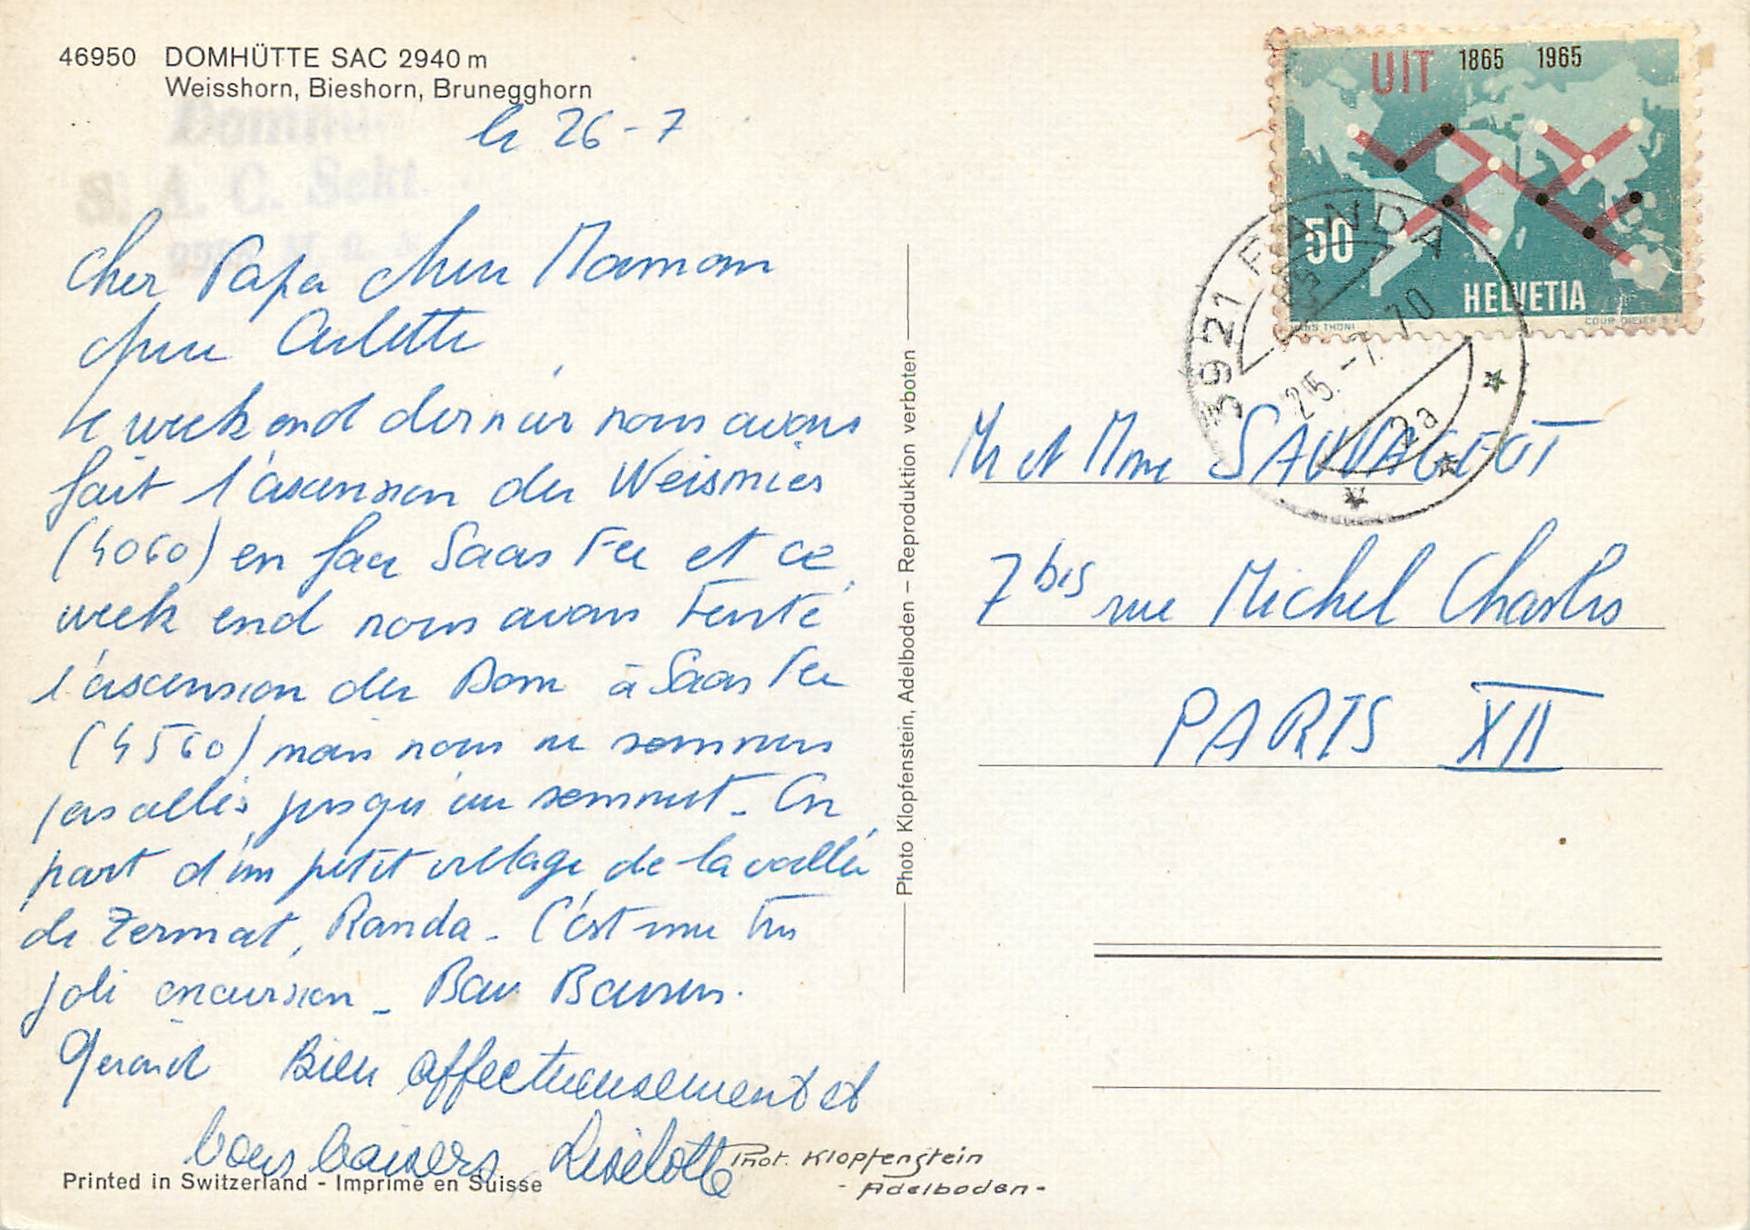 46950 DOMHÜTTE SAC 2940 m
Weisshorn, Bieshorn, Brunegghorn
S. A. C. Sekt.
le 26-7
Cher Papa chère Maman
chère Arlette
le week end dernier nous avons
fait l'ascension du Weismies
(4060) en face Saas Fee et ce
week end nous avons tenté
l'ascension du Dom à Saas Fee
(4560) mais nous ne sommes
pas allés jusqu'au sommet - On
part d'un petit village de la vallée
de Zermat, Randa - C'est une très
joli excursion - Bons Baisers.
Gerard Bien affectueusement et
bons baisers, Liselotte
Printed in Switzerland - Imprimé en Suisse
Phot. Klopfenstein
- Adelboden -
Photo Klopfenstein, Adelboden – Reproduktion verboten
UIT 1865 1965
50
HELVETIA
HANS THÖNI
3921 RANDA
25.-7.70
2a
Mr et Mme SAUVAGEOT
7 bis rue Michel Chasles
PARIS XII